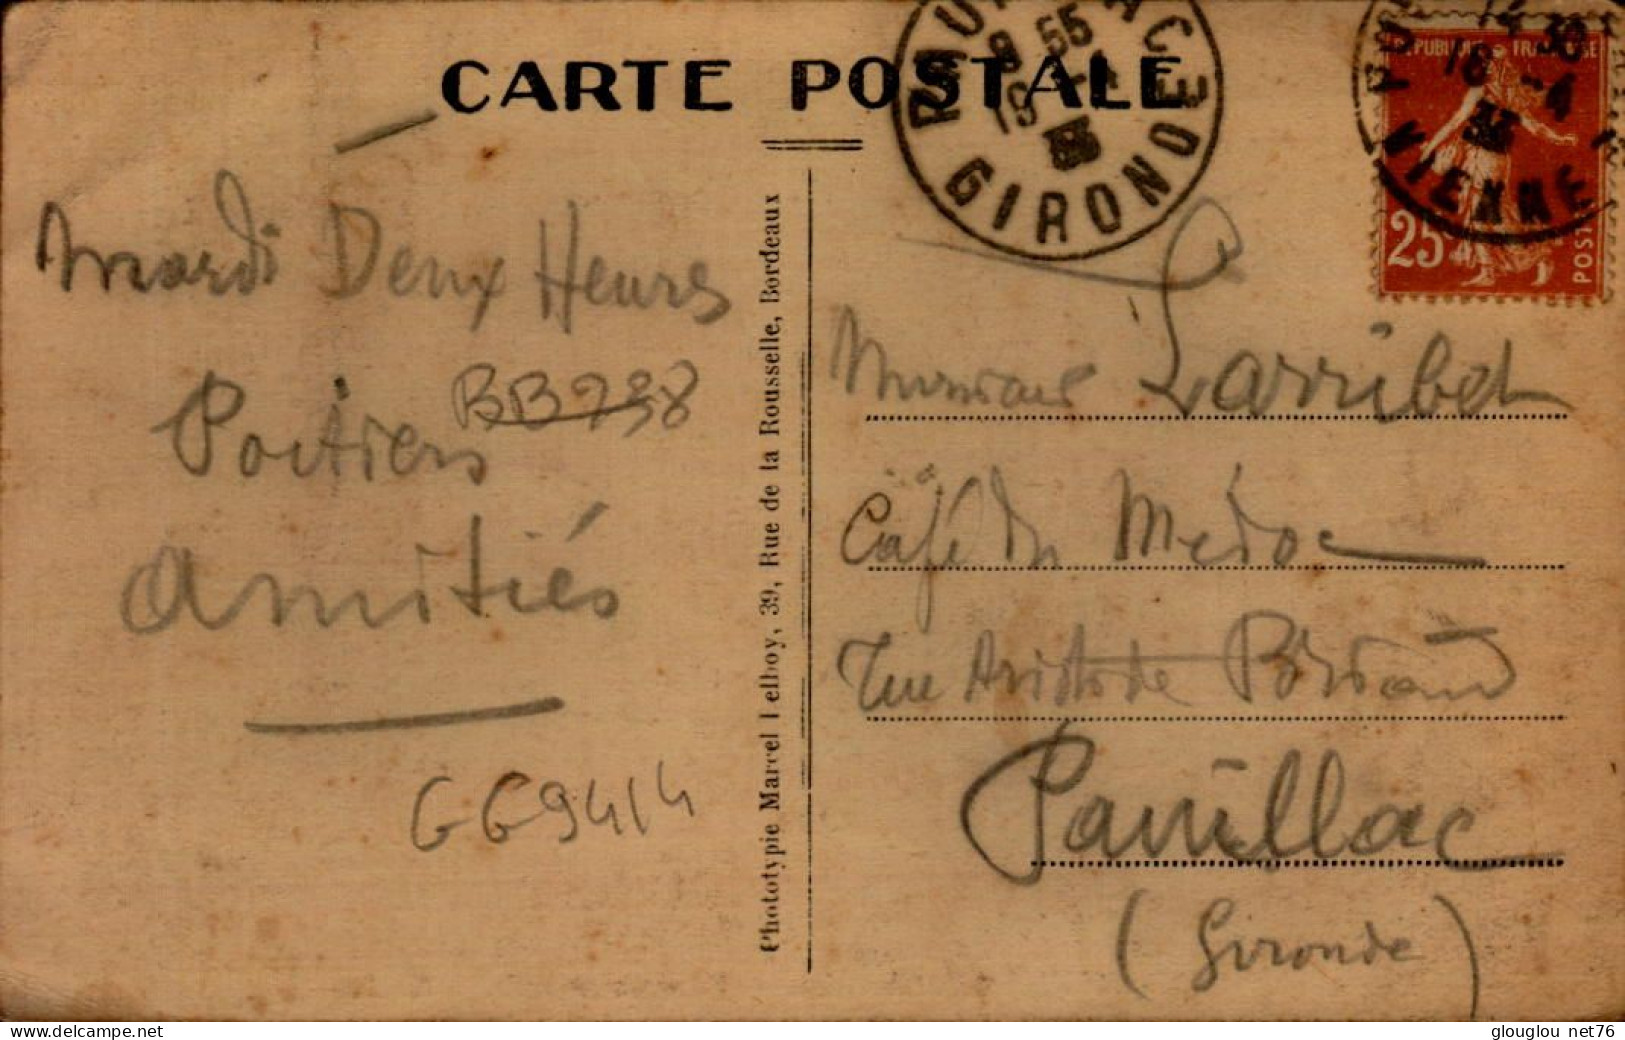 CARTE POSTALE
PAUILLAC
9 55
19
GIRONDE
14 30
18 -4
33
VIENNE
REPUBLIQUE FRANÇAISE
25
POST
mardi Deux Heures
BB 798
Poitiers
amitiés
GG9414
Phototypie Marcel Delboy, 39, Rue de la Rousselle, Bordeaux
Monsieur Larribet
Café du Médoc
rue Aristide Briand
Pauillac
(Gironde)
glouglou net76